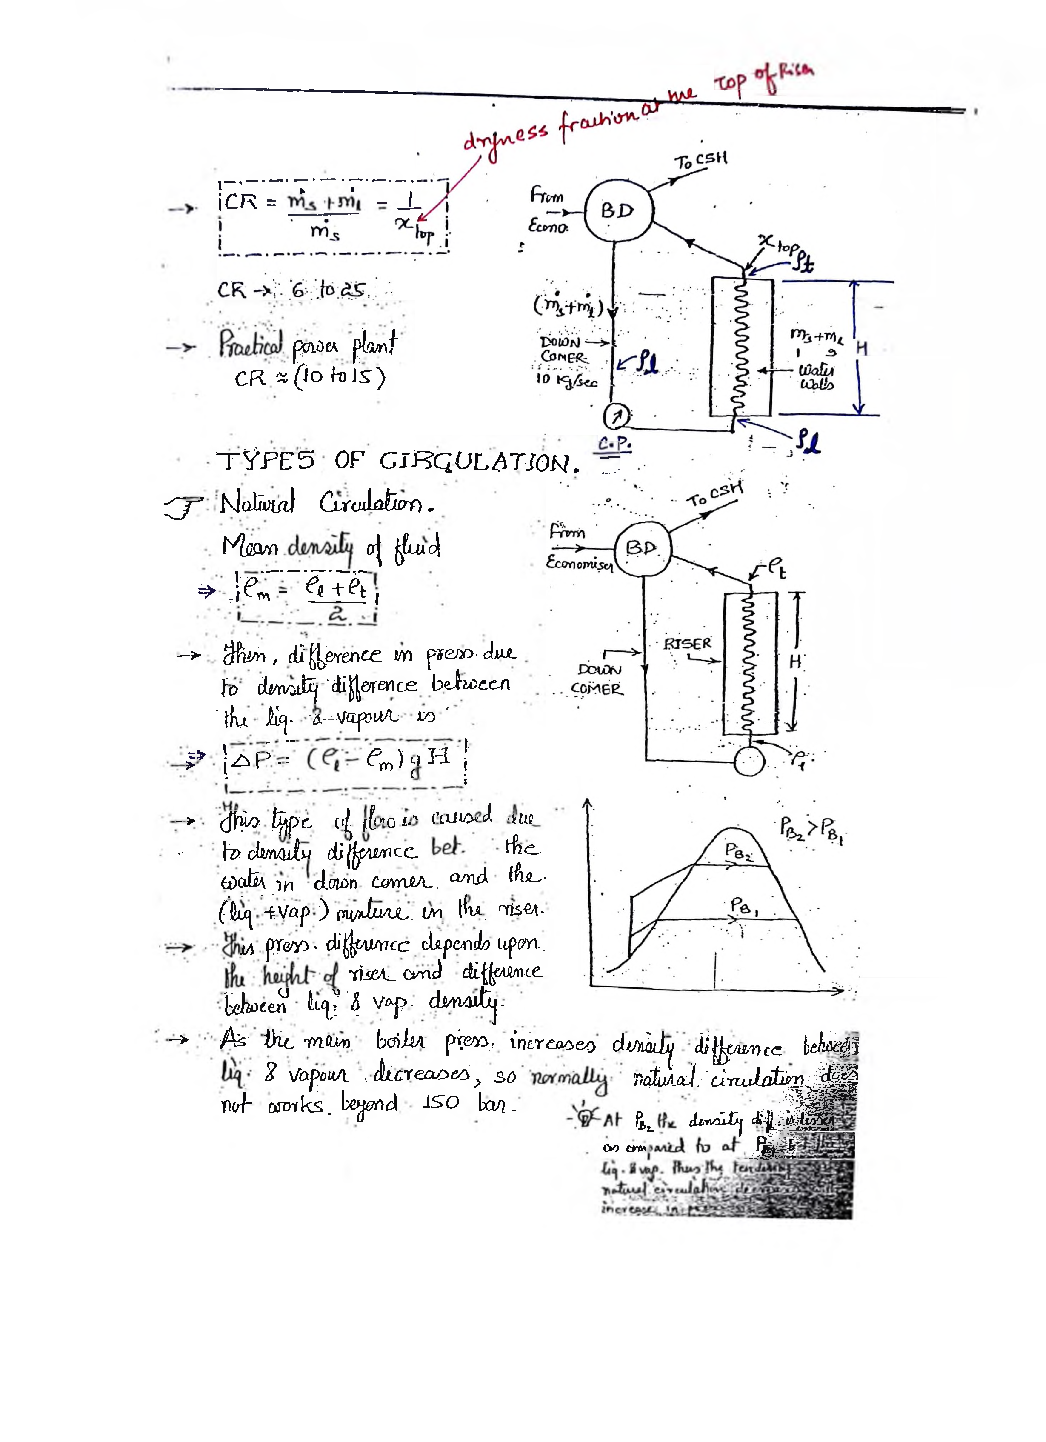 dryness fraction at the Top of Riser
CR = ṁs + ṁl / ṁs = 1 / x top
CR → 6 to 25
→ Practical power plant
CR ≈ (10 to 15)
To CSH
From
Econo.
BD
x top
ρt
(ṁs+ṁl)
DOWN
COMER
10 kg/sec
ρl
ṁs+ṁl
1 9
water
walls
H
C.P.
ρl
TYPES OF CIRCULATION.
Natural Circulation.
Mean density of fluid
⇒ ρm = ρl + ρt / 2
→ Then, difference in press. due
to density difference between
the liq. & vapour is
⇒ ΔP = (ρl - ρm) g H
To CSH
From
Economiser
BD
ρt
RISER
DOWN
COMER
H
ρl
→ This type of flow is caused due
to density difference bet. the
water in down comer and the
(liq. + vap.) mixture in the riser.
→ This press. difference depends upon
the height of riser and difference
between liq. & vap. density.
PB2 > PB1
PB2
PB1
→ As the main boiler press. increases density difference between
liq. & vapour decreases, so normally natural circulation does
not works beyond 150 bar.
At PB2 the density diff. is lesser
as compared to at PB1 bet the
liq. & vap. Thus the tendency
natural circulation decreases with
increase in